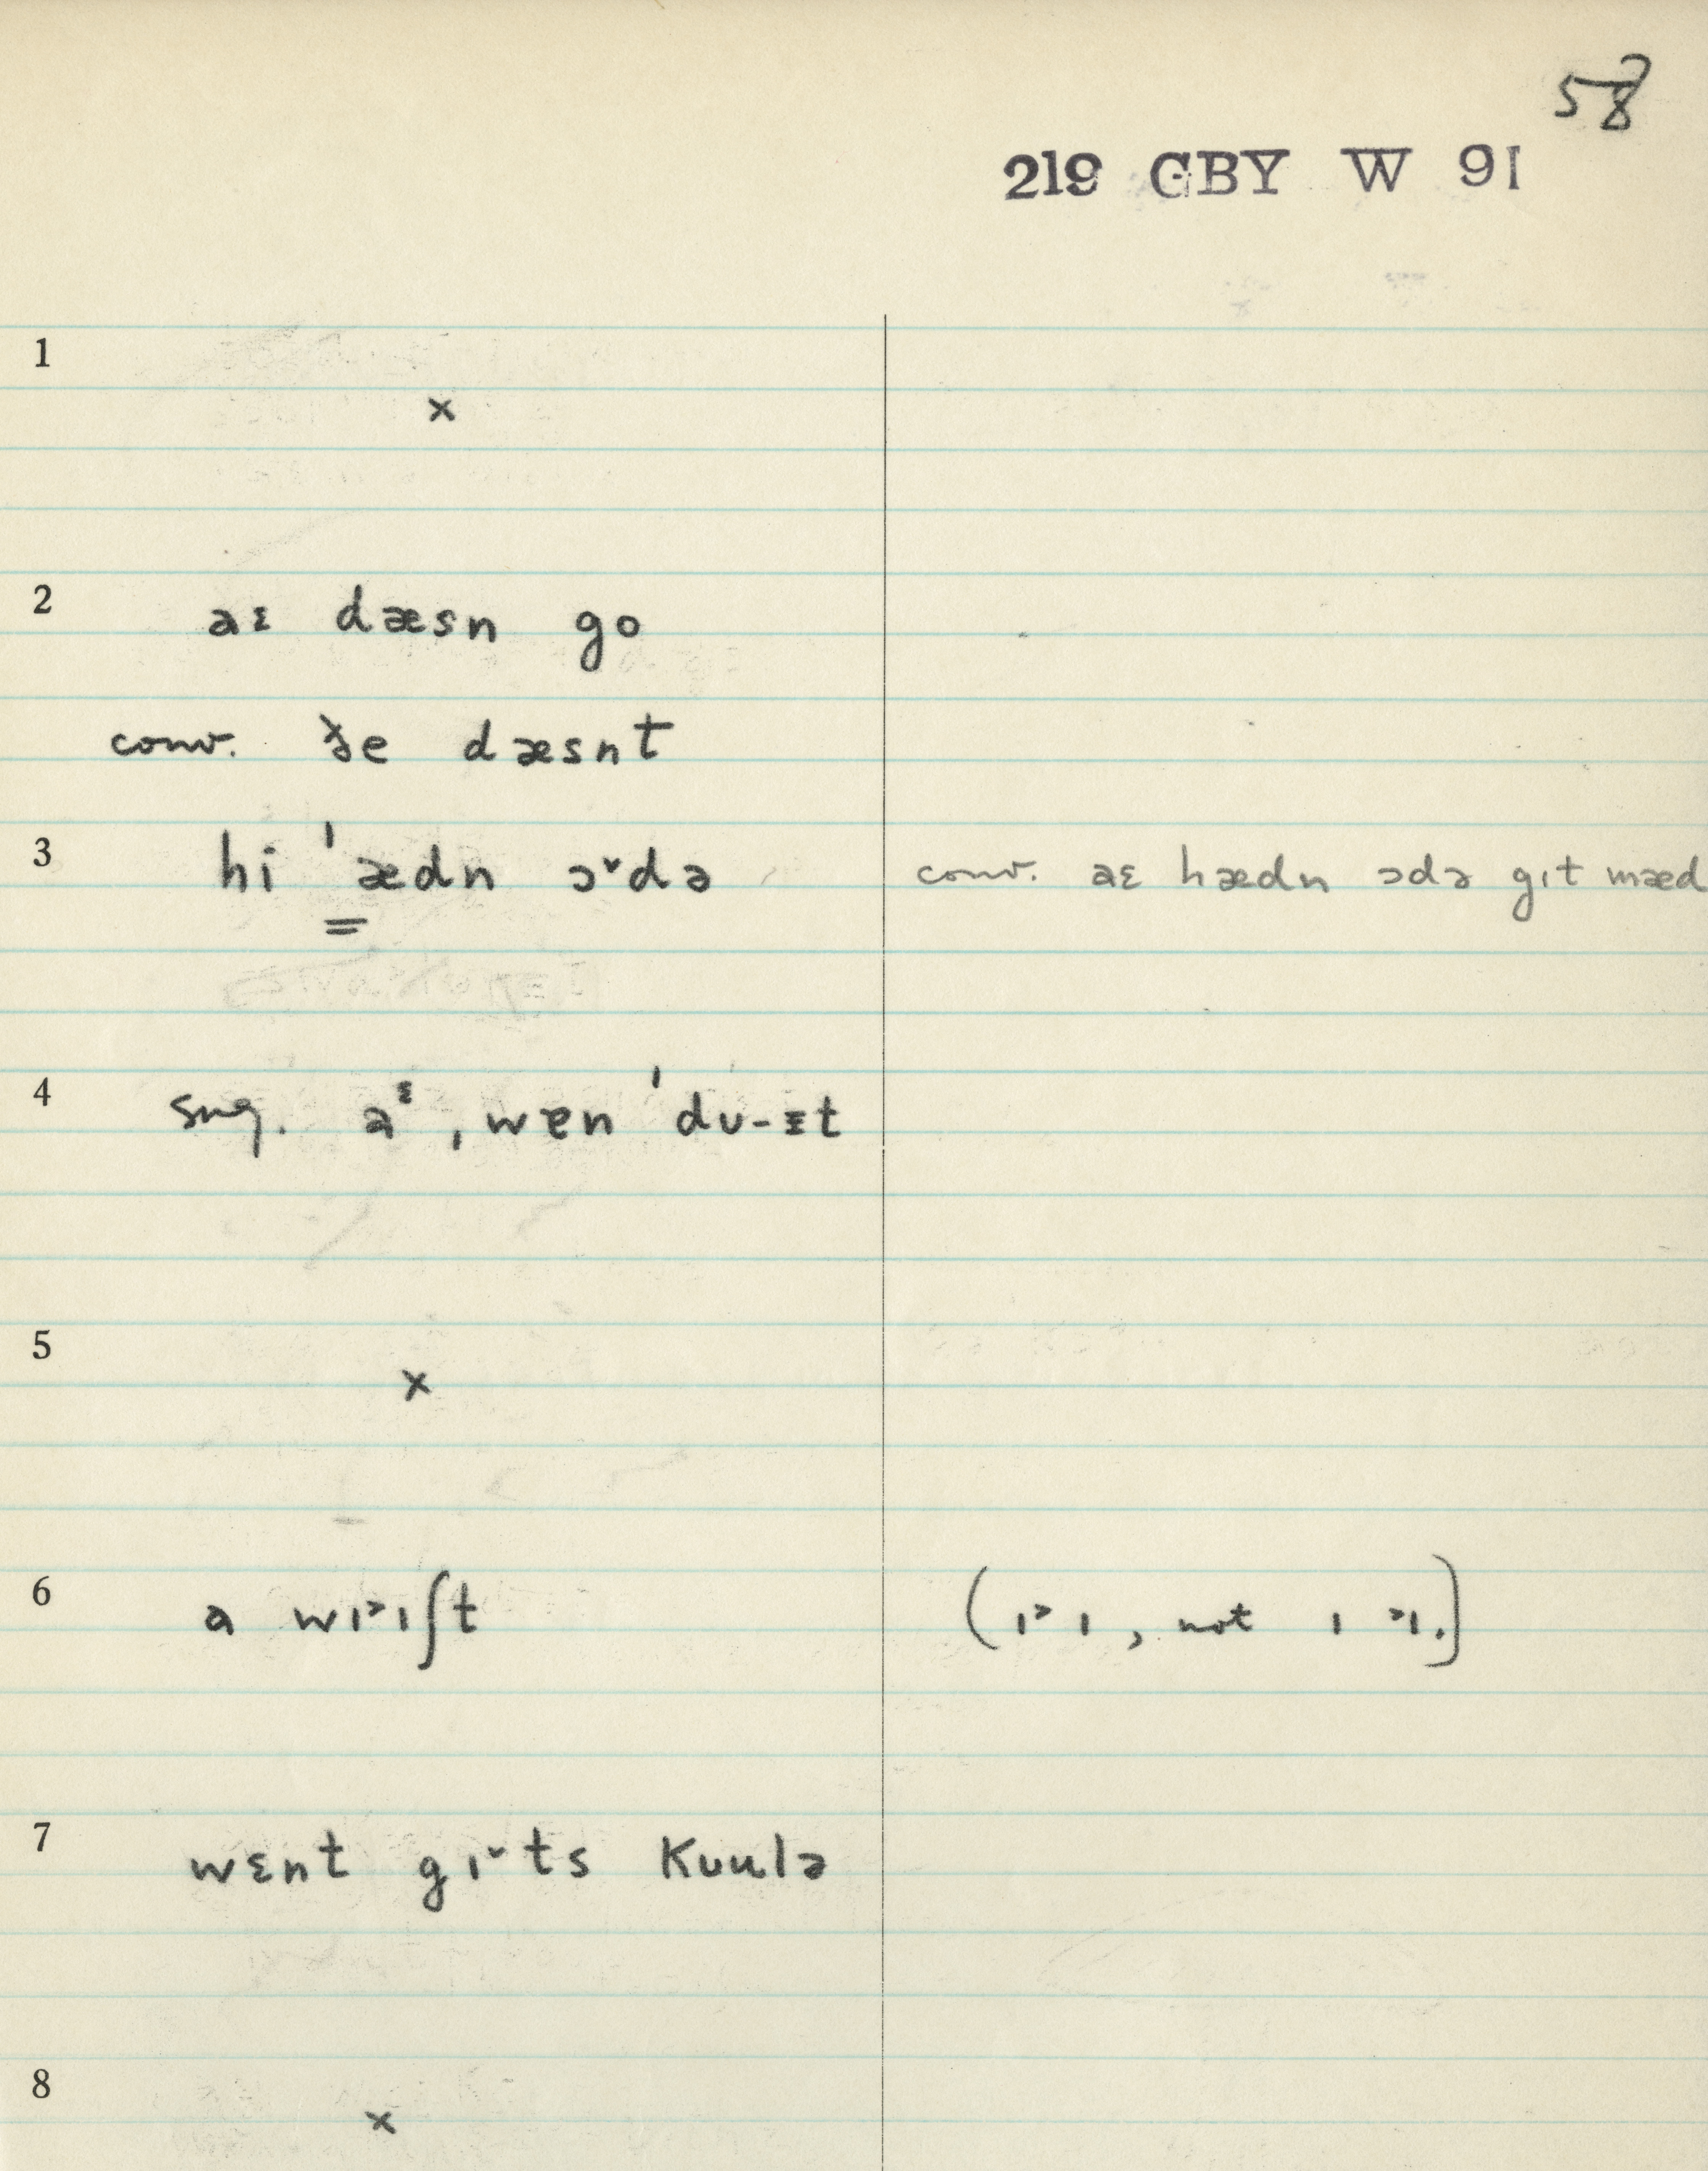 58
219 GBY W 91
1
×
2 aɛ dæsn go
conv. ðe dæsnt
3 hi ˈædn ɔ˅də conv. aɛ hædn ɔdə gɪt mæd
4 sug. aᵋ, wɛn ˈdu-ɪt
5
×
6 a wɪ˃ɪʃt (ɪ˃ɪ, not ɪ ˃ɪ.)
7 wɛnt gɪ˅ts kʊulə
8
×